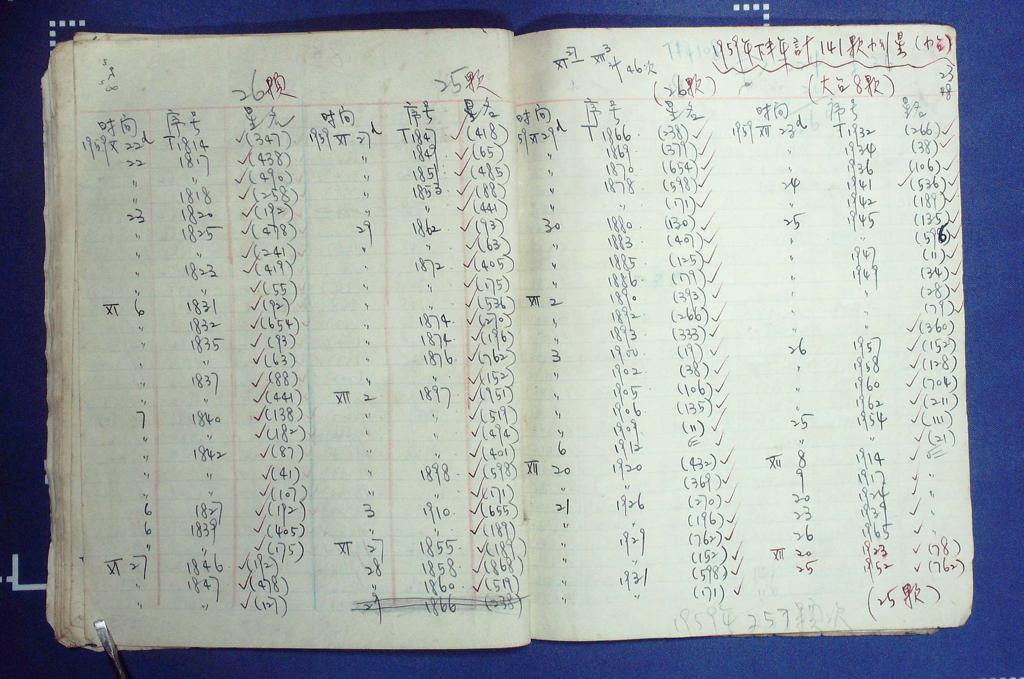 26颗
时间 序号 星名
1959 XI 22d T1814 ✓(347)
22 1817 ✓(438)
〃 〃 ✓(490)
〃 1818 ✓(258)
23 1820 ✓(192)
〃 1825 ✓(478)
〃 〃 ✓(241)
〃 1823 ✓(419)
〃 〃 ✓(55)
XII 6 1831 ✓(92)
〃 1832 ✓(654)
〃 1835 ✓(93)
〃 〃 ✓(63)
〃 1837 ✓(88)
〃 〃 ✓(441)
7 1840 ✓(138)
〃 〃 ✓(182)
〃 1842 ✓(87)
〃 〃 ✓(41)
〃 〃 ✓(107)
6 1827 ✓(192)
6 1839 ✓(405)
〃 〃 ✓(175)
XI 27 1846 ✓(192)
〃 1847 ✓(478)
〃 〃 ✓(127)
25颗
时间 序号 星名
1959 XI 27d T1847 ✓(418)
〃 1849 ✓(65)
〃 1851 ✓(485)
〃 1853 ✓(88)
〃 〃 ✓(441)
29 1862 ✓(93)
〃 〃 ✓(63)
〃 1872 ✓(405)
〃 〃 ✓(175)
〃 〃 ✓(536)
〃 1874 ✓(270)
〃 1874 ✓(196)
〃 1876 ✓(762)
〃 〃 ✓(152)
XII 2 1897 ✓(951)
〃 〃 ✓(519)
〃 〃 ✓(494)
〃 〃 ✓(401)
〃 1898 ✓(598)
〃 〃 ✓(171)
3 1910 ✓(655)
〃 〃 ✓(189)
XI 27 1855
28 1858 ✓(868)
〃 1860 ✓(519)
29 1866 (238)
1959年下半年計141颗小行星(小台)
(26颗) (大台8颗)
时间 序号 星名
1959 XI 29d T1866 (238)✓
〃 1869 (379)✓
〃 1870 (654)✓
〃 1878 (598)✓
〃 〃 (171)✓
30 1880 (130)✓
〃 1883 (40)✓
〃 1885 (125)✓
〃 1886 (79)✓
〃 1890 (393)✓
XII 2 1892 (266)✓
〃 1893 (333)✓
3 1900 (19)✓
〃 1902 (38)✓
〃 1905 (106)✓
〃 1906 (135)✓
〃 1909 (11)✓
6 1912
XII 20 1920 (432)✓
〃 〃 (369)✓
21 1926 (270)✓
〃 〃 (196)✓
〃 1929 (762)✓
〃 〃 (152)✓
〃 1931 (598)✓
〃 〃 (171)✓
时间 序号 星名
1959 XII 23d T1932 (266)✓
〃 1934 (38)✓
〃 1936 (106)✓
24 1941 ✓(536)✓
〃 1942 (189)✓
25 1945 (135)✓
〃 〃 (596)✓
〃 1947 (11)✓
〃 1949 (34)✓
〃 〃 (28)✓
〃 〃 (79)✓
〃 〃 ✓(360)
26 1957 ✓(152)
〃 1958 ✓(128)
〃 1960 ✓(704)
〃 1962 ✓(211)
25 1954 ✓(111)
〃 〃 ✓(21)
XII 8 1914
9 1917
20 1924
23 1939
26 1965
XII 20 1923 ✓(78)
25 1952 ✓(762)
(25颗)
1959年 257颗次